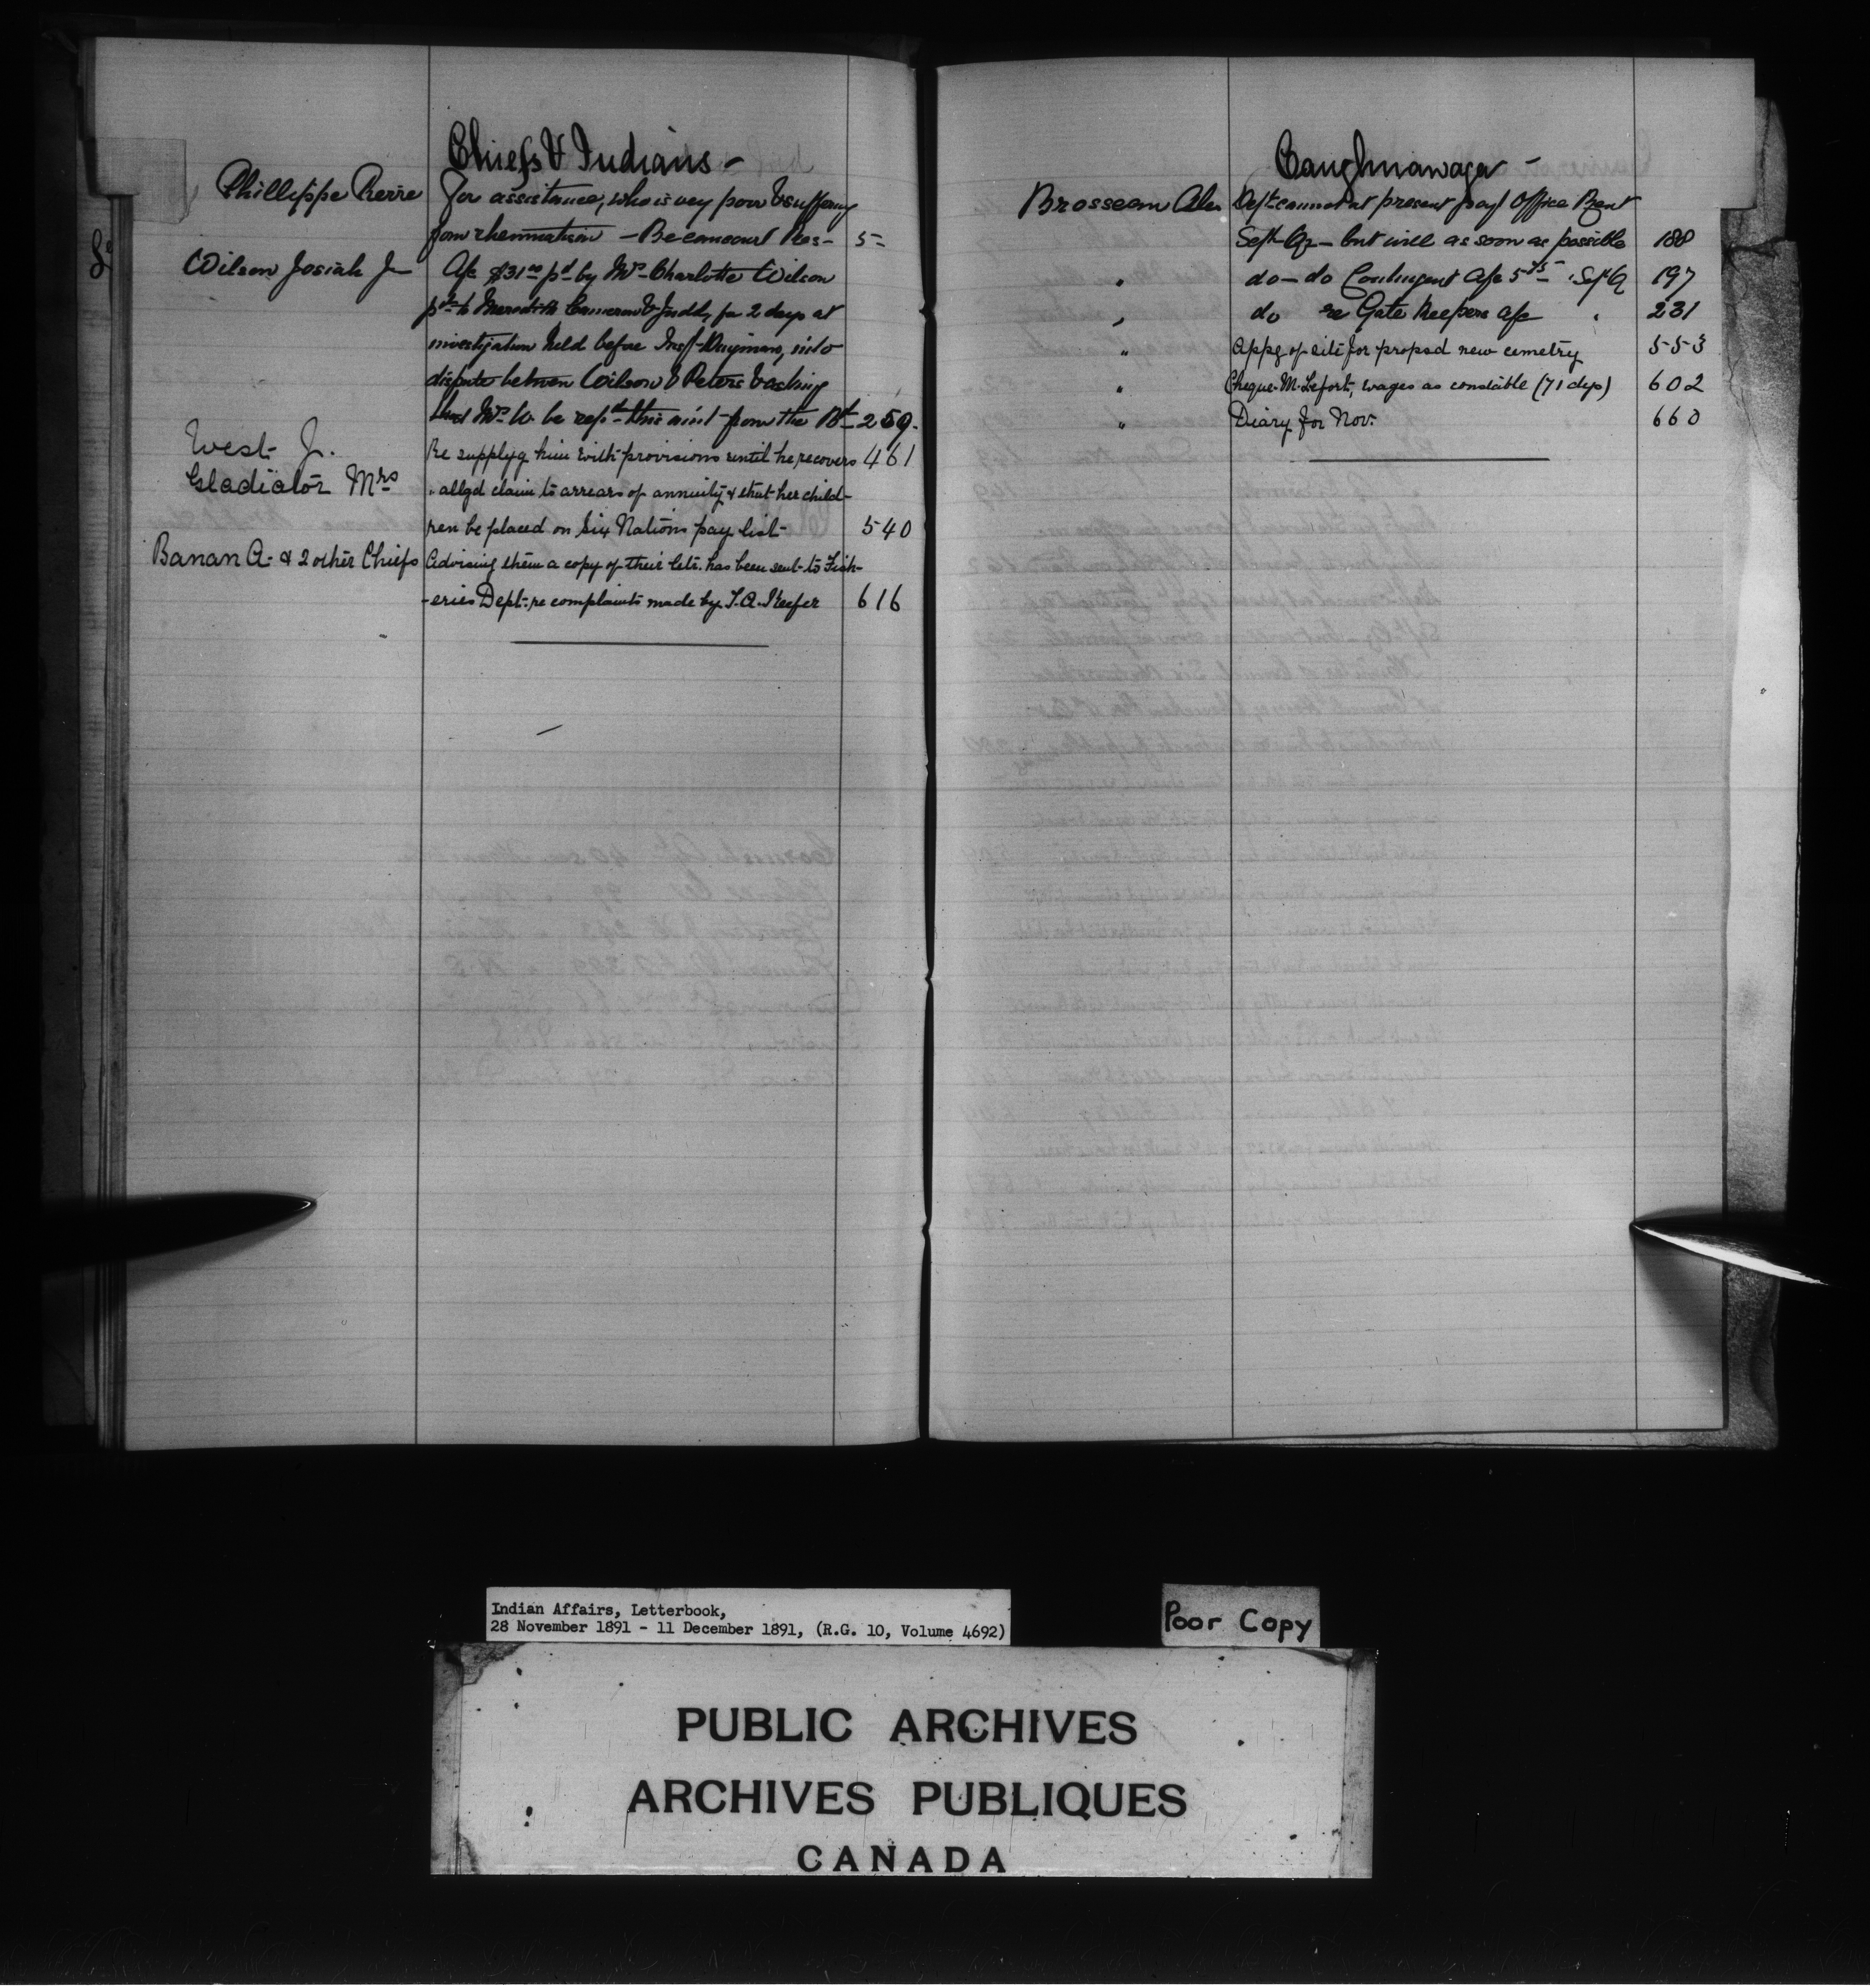 Chiefs & Indians -
Phillippe Pierre For assistance, who is very poor & suffering
from rheumatism - Becancour Res- 5-
Wilson Josiah Jr A/c $31.00 pd by Mrs Charlotte Wilson
pd to Meredith Cameron & Judd, for 2 days at
investigation held before Insp- Dingman, into
dispute between Wilson & Peters & asking
that Mrs W. be repd this am't from the Bd 259.
West J. Re supplyg him with provisions until he recovers 461
Gladiator Mrs " allgd claim to arrears of annuity & that her child-
ren be placed on Six Nations pay list- 540
Banan A. & 2 other Chiefs Advising them a copy of their letr. has been sent to Fish-
-eries Dept. re complaints made by T.A. Keefer 616
Caughnawaga -
Brosseau Alex Dept cannot at present pay Office Rent
Sept Qr - but will as soon as possible 188
" do - do Contingent A/c 5.75 Sept Q 197
" do re Gate Keepers A/c " 231
" Appg of site for propsd new cemetry 553
" Cheque M. Lefort, wages as constable (71 dys) 602
" Diary for Nov. 660
Indian Affairs, Letterbook,
28 November 1891 - 11 December 1891, (R.G. 10, Volume 4692)
Poor Copy
PUBLIC ARCHIVES
ARCHIVES PUBLIQUES
CANADA